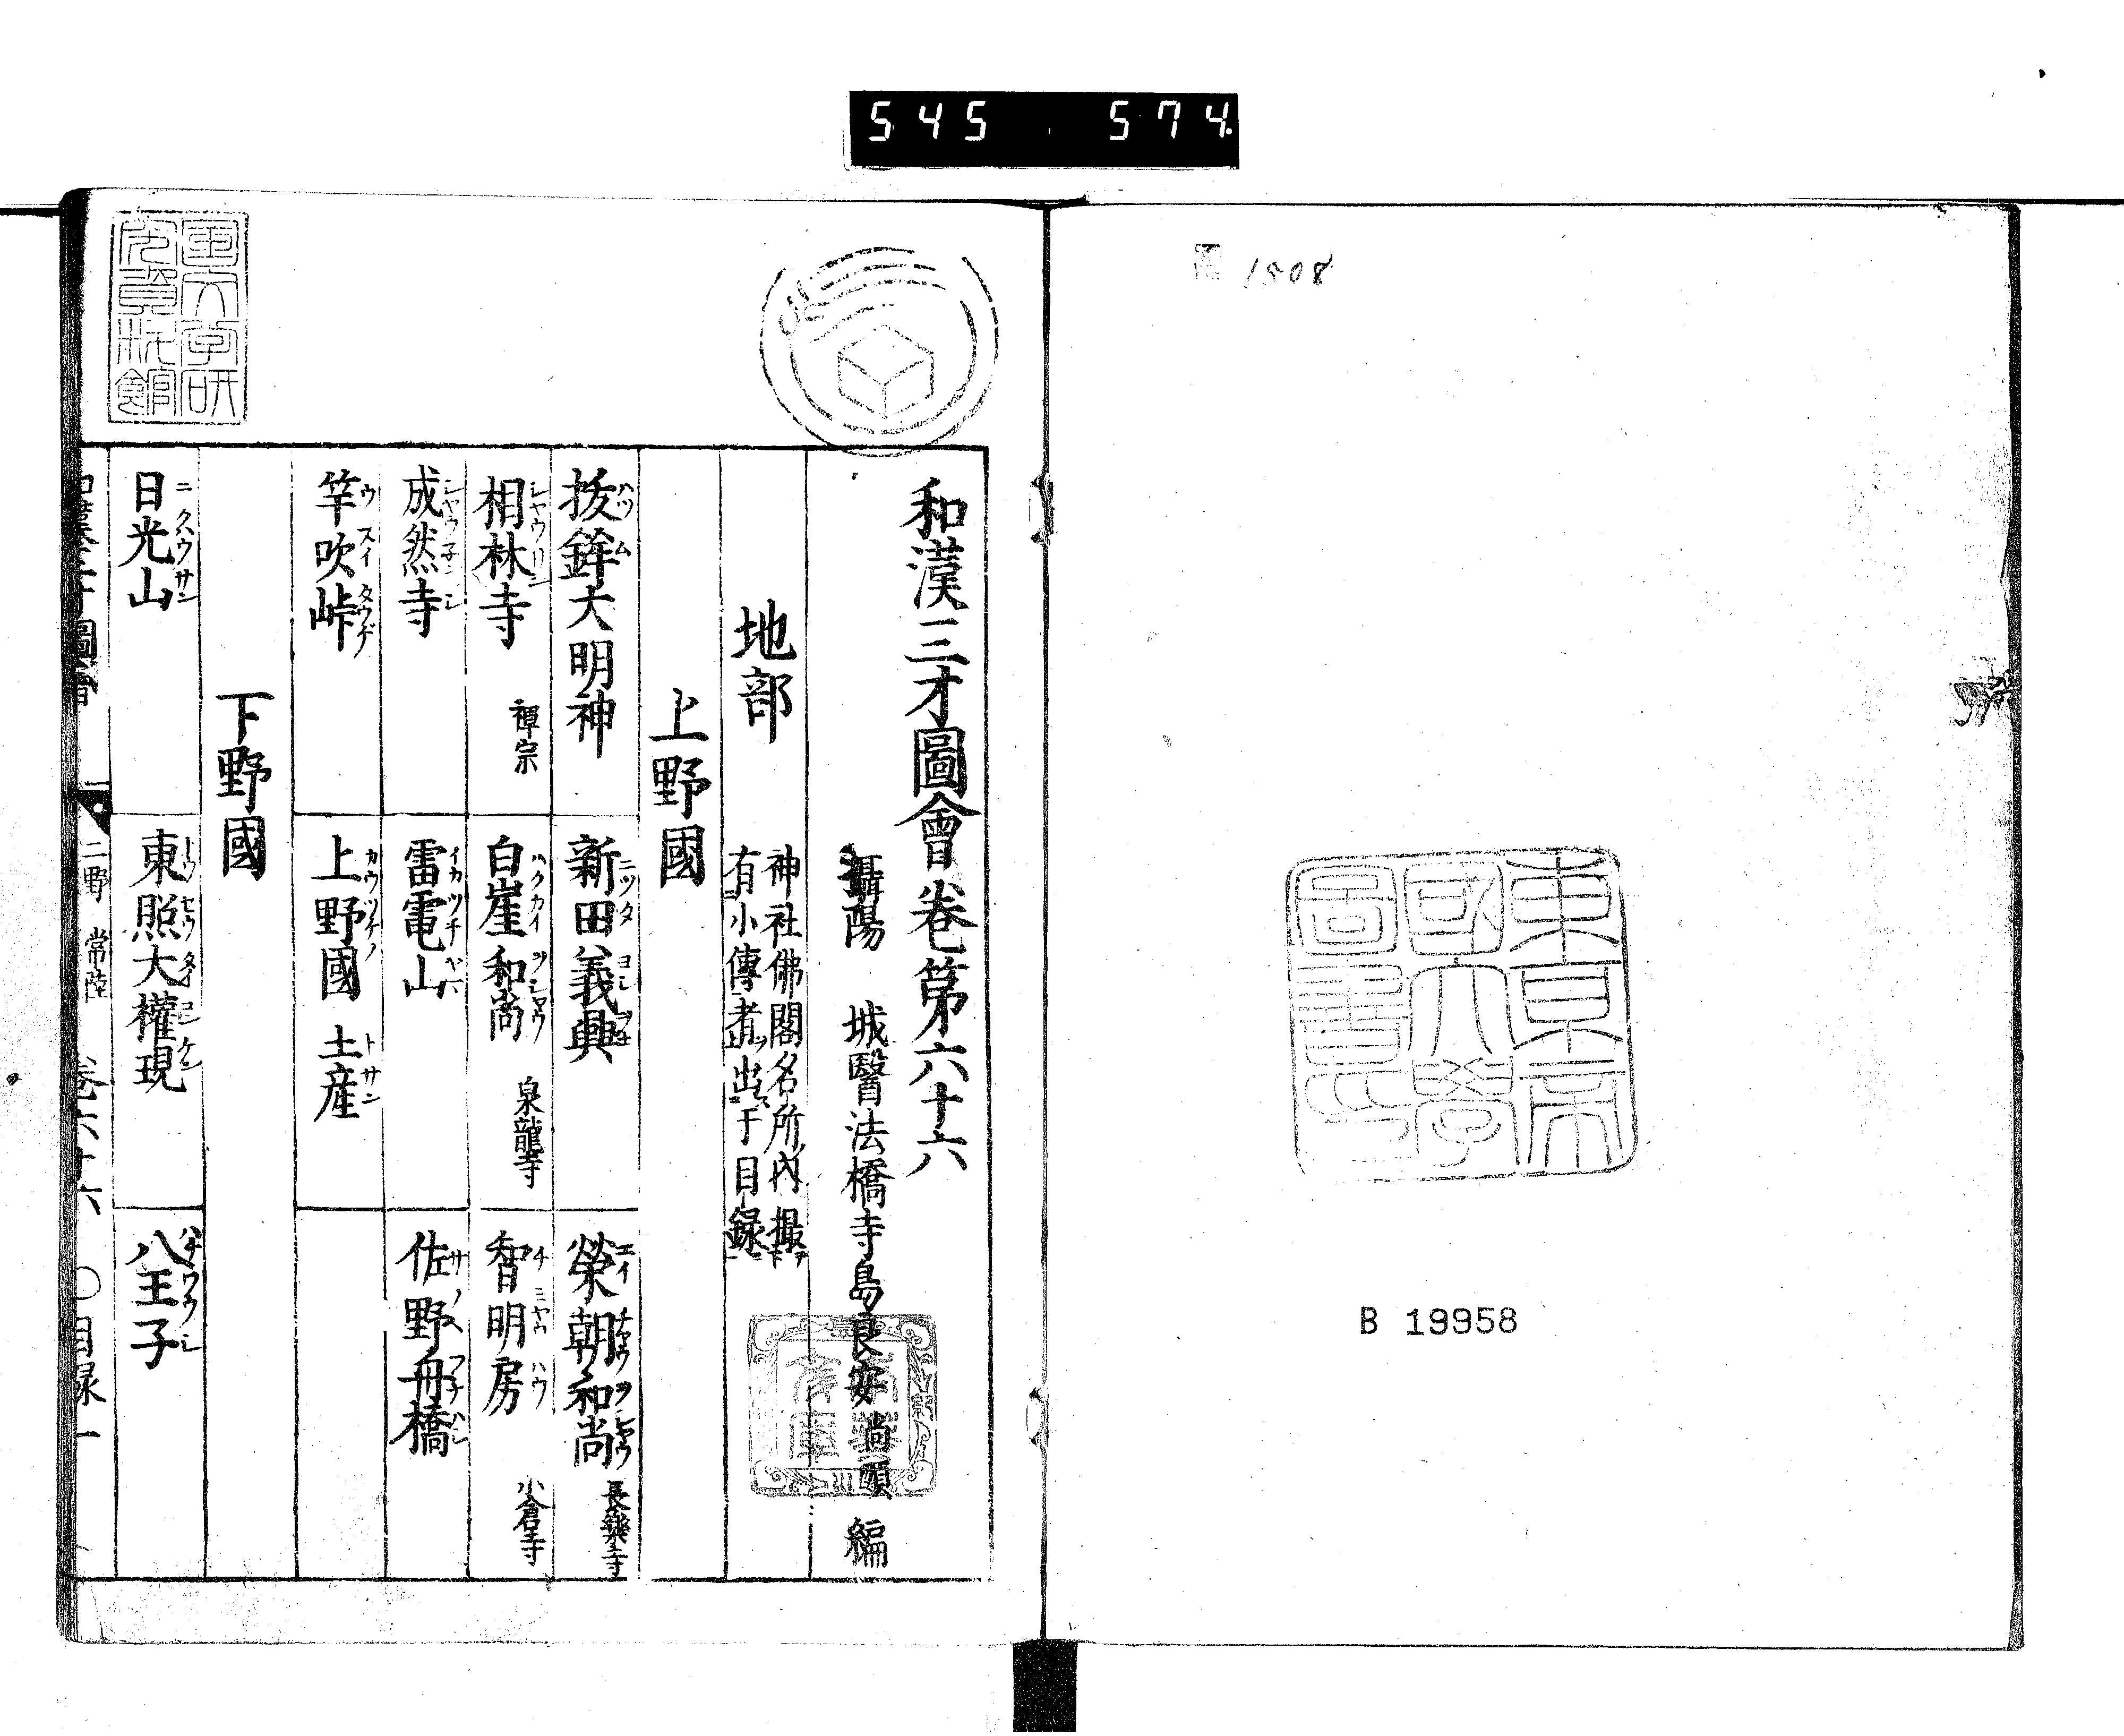 545 574
1508
東京帝
國大學
圖書印
B 19958
和漢三才圖會卷第六十六
攝陽 城醫法橋寺島良安尚順 編
地部 神社佛閣名所內撮
有小傳者出于目錄
上野國
拔鉾大明神 新田義興 榮朝和尚 長樂寺
相林寺 禪宗 白崖和尚 泉龍寺 智明房 小倉寺
成然寺 雷電山 佐野舟橋
笇吹峠 上野國土産
下野國
日光山 東照大權現 八王子
二野 常陸 卷六十六 〇目録一